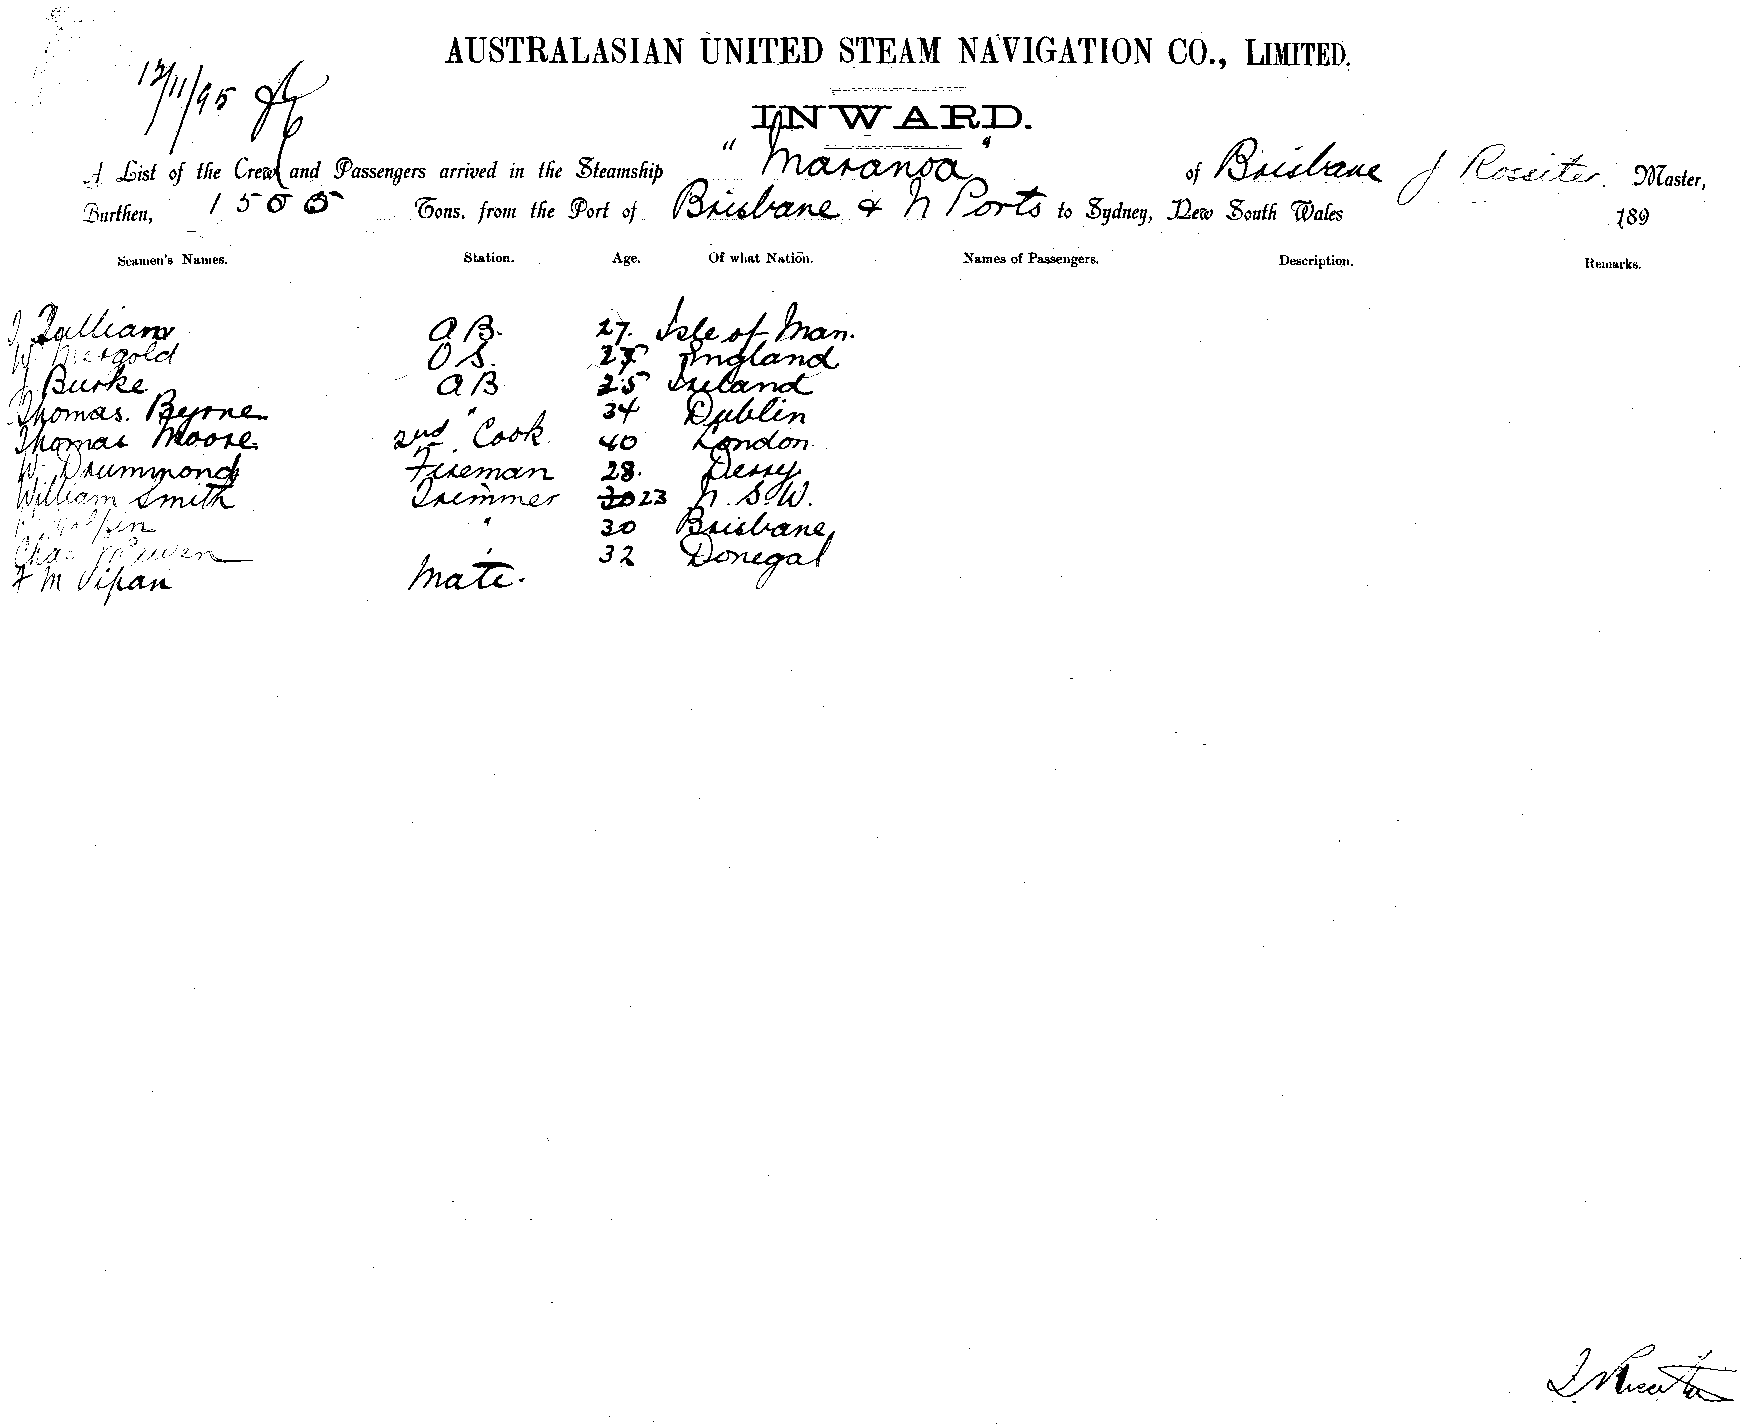 AUSTRALASIAN UNITED STEAM NAVIGATION CO., LIMITED.
12/11/95
INWARD.
A List of the Crew and Passengers arrived in the Steamship "Maranoa" of Brisbane J Rossiter. Master,
Burthen, 1505 Tons, from the Port of Brisbane & N Ports to Sydney, New South Wales 189
Seamen's Names. Station. Age. Of what Nation. Names of Passengers. Description. Remarks.
A B. 27. Isle of Man.
W O S. England
J Burke A B 25 Ireland
Thomas. Byrne " 34 Dublin
Thomas Moore 2nd Cook 40 London
W. Drummond Fireman 28. Derry
William Smith Trimmer 30 23 N. S. W.
" 30 Brisbane
Chas " 32 Donegal
F M Mate.